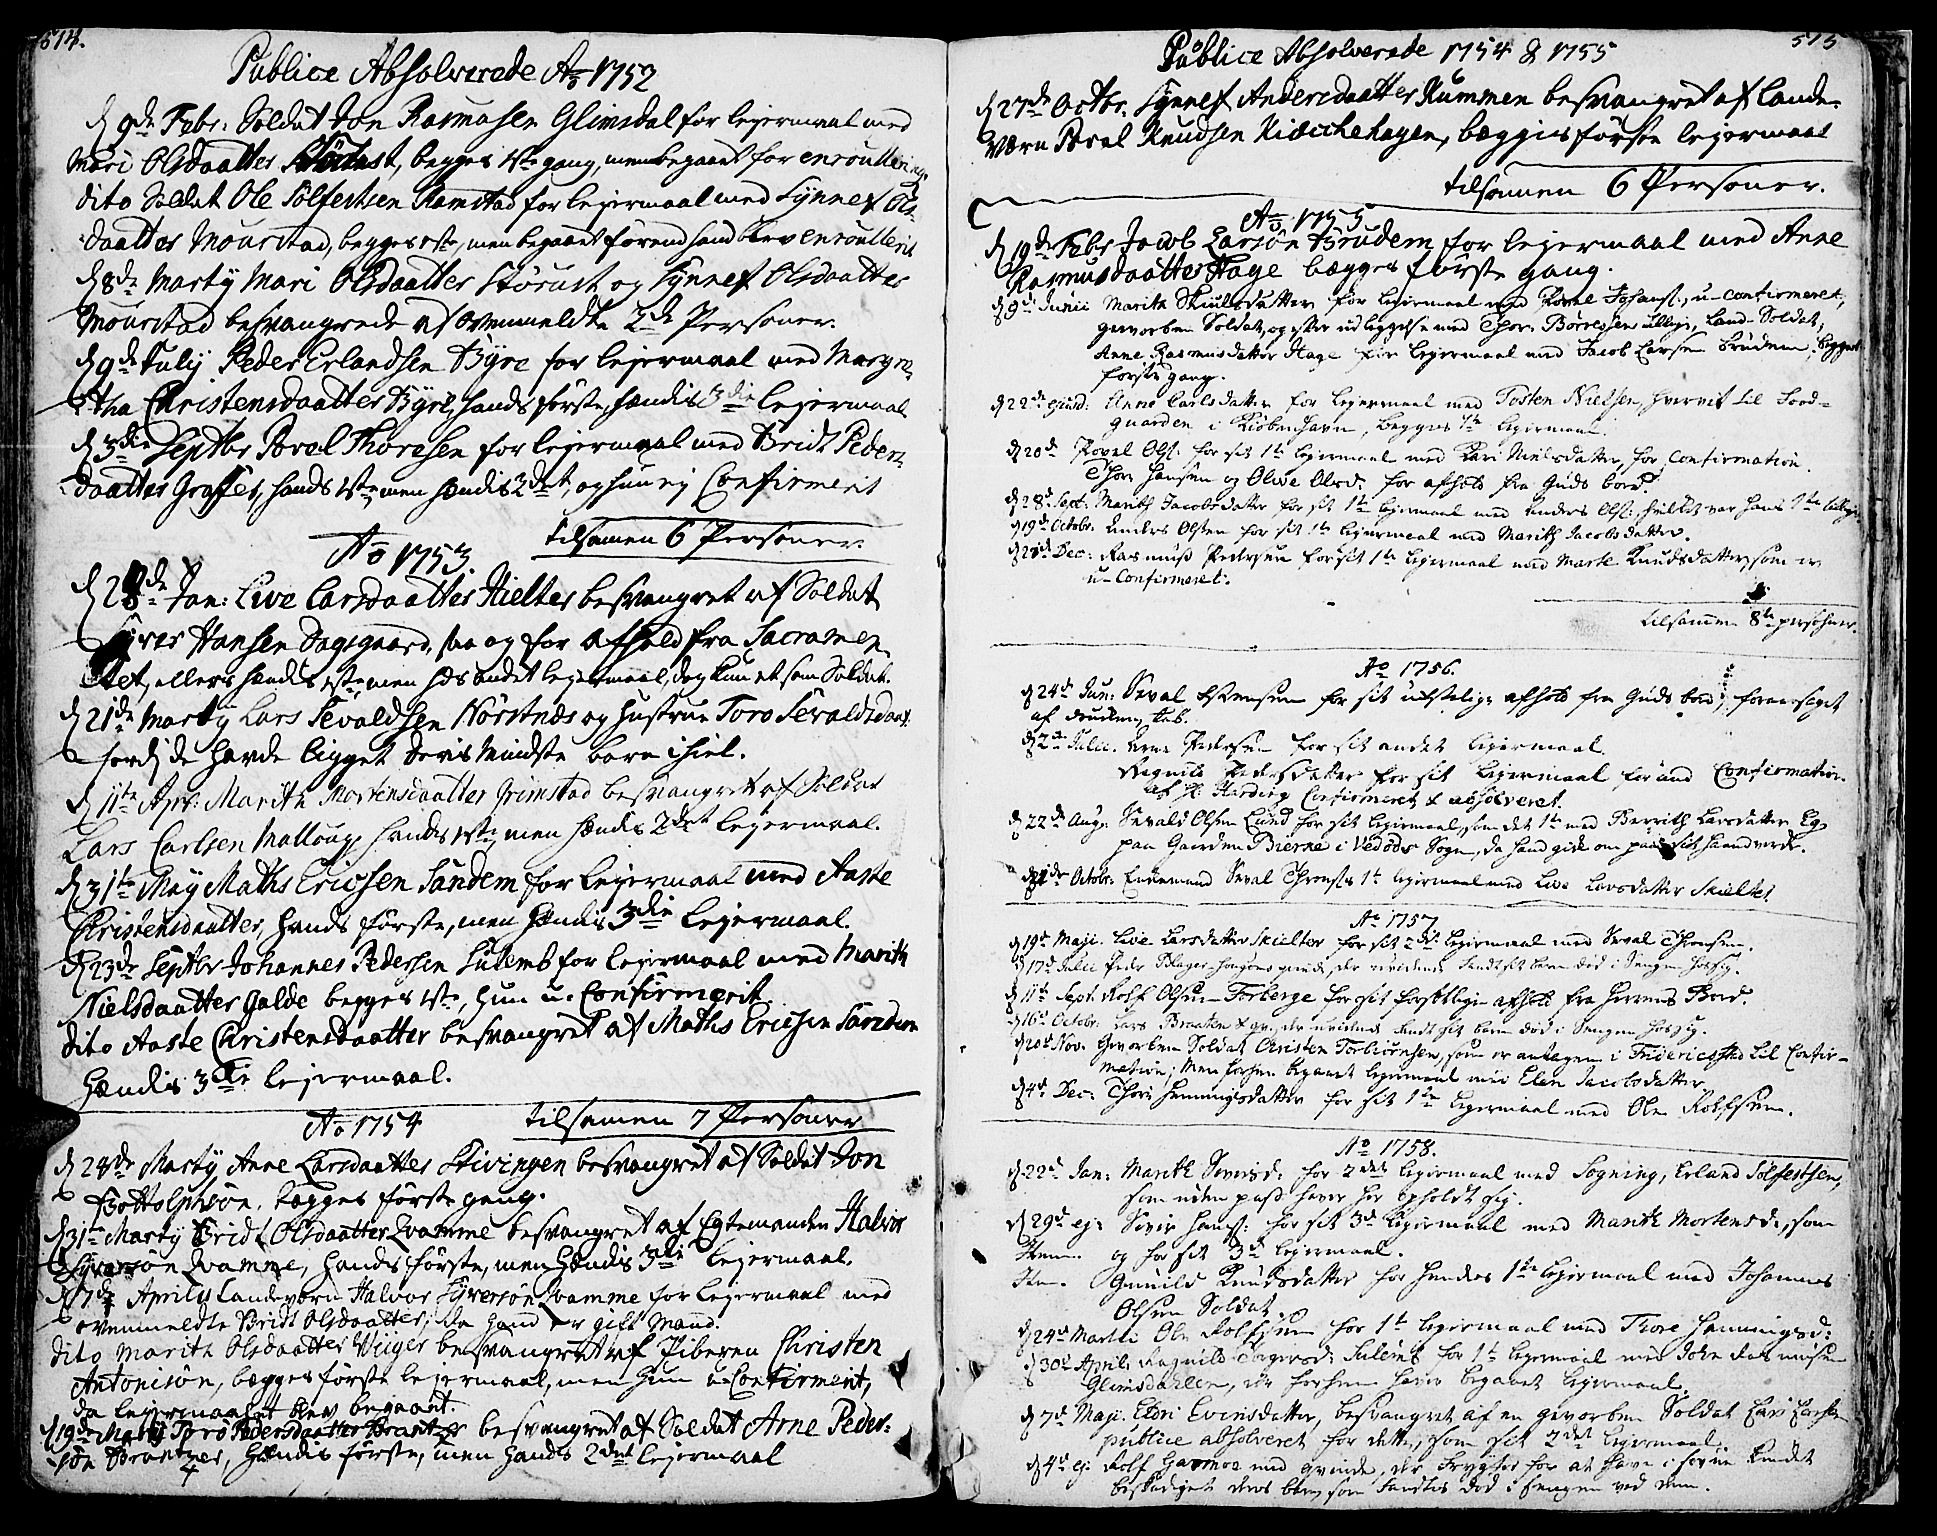 514.
Publice Absolverede Ao 1752
d 9de Febr: Soldat Jon Rasmusen Glimsdal for lejermaal med
Mari Olsdaatter Störust, begges 1ste gang, men begaaet for enroullering.
dito Soldat Ole Solfestsen Ramstad for lejermaal med Synnef Ols-
daatter Mourstad, begges 1ste, men begaaet forend hand blev enroullerit
d 8de Martij Mari Olsdaatter Störust og Synnef Olsdaatter
Mourstad besvangrede af ovenmeldte 2de Personer.
d 9de Julij Peder Erlandsen Byre for lejermaal med Margre-
tha Christensdaatter Byre, hands förste, hændis 3die lejermaal
d 3die Septbr Povel Thoresen for lejermaal med Bridt Peders-
daatter Graffer, hands 1ste, men hændis 2det, og hun ej Confirmerit
tilsamen 6 Personer.
Ao 1753.
d 28de Jan: Live Larsdaatter Hielter besvangret af Soldat
Syver Hansen Dagsgaard, saa og for afhold fra Sacramen-
tet, ellers hendes 1ste, men hds andet lejermaal, dog kun et som Soldat.
d 21de Martij Lars Sevaldsen Nörstnæs og hustrue Toro Sevaldsdaat.
fordj de havde ligget deris Mindste barn ihiel.
d 11te Apr: Marith Mortensdaatter Grimstad besvangret af Soldat
Lars Carlsen Mallöug, hands 1ste, men hændis 2det lejermaal.
d 31te Maij Maths Ericsen Sandem for lejermaal med Aaste
Christensdaatter, hands förste, men hændis 3die lejermaal.
d 23de Septbr Johannes Pedersen Sulemb for lejermaal med Marith
Nielsdaatter Galde begges 1ste, hun u-Confirmerit.
dito Aaste Christensdaatter besvangret af Maths Ericsen Sandem
hændis 3die lejermaal.
tilsamen 7 Personer
Ao 1754
d 24de Martij Anne Larsdaatter Stivingen besvangret af Soldat Jon
Bottolphsön, begges förste gang.
d 31te Martij Bridt Olsdaatter Qvamme besvangret af Egtemanden Halvor
Syversön Qvamme, hands förste, men hændis 3die lejermaal.
d 7de Aprilis Landværn Halvor Syversön Qvamme for lejermaal med
ovenmeldte Bridt Olsdaatter; da hand er gift Mand.
dito Marith Olsdaatter Wiiger besvangret af Piberen Christen
Antonisön, begges förste lejermaal, men hun u-Confirmerit,
da lejermaalet blev begaaet.
d 19de Maij Toro Pedersdaatter Brantzer besvangret af Soldat Arne Peder-
sön Brantzer, hændis förste, men hands 2det lejermaal
515
Publice Absolverede 1754 & 1755
d 27de Octbr. Synnef Andersdaatter Kummen besvangret af Lande-
værn Povel Knudsen Kiœcchehagen, begges förste lejermaal
tilsamen 6 Personer.
Ao 1755
d 19de Febr Jacob Larsön Brudem for lejermaal med Anne
Rasmusdaatter Hage begges förste gang.
d 9de Junii Marith Skiulsdatter for lejermaal med Povel Johans:, u-confirmeret,
gevorben Soldat, og efter udliggelse med Thor Börresen ullige, Land-Soldat,
Anne Rasmusdatter Hage for lejermaal med Jacob Larsen Brudem, begges
förste gang.
d 22de ejusd: Anne Carlsdatter for lejermaal med Tosten Nielsen, hvervet til Food-
guarden i Kiöbenhavn, begges 1te lejermaal.
d 20de Povel Ols: for sit 1te lejermaal med Kari Nielsdatter, for Confirmation.
Thor Hansen og Olive Olsd: for afhold fra Guds bord.
d 28de Sept: Marith Jacobsdatter for sit 1te lejermaal med Anders Ols:, hvilket var hans 1te
d 19de Octobr: Anders Olsen for sit 1te lejermaal med Marith Jacobsdatter.
d 28de Dec: Rasmus Pedersen for sit 1te lejermaal med Marte Knudsdatter, som er
u-Confirmeret.
tilsamen 8te persohner.
Ao 1756.
d 24de Jan: Seval Estensen for sit idstelige afhold fra Guds bord, foraarsaget
af
d 2de Julii. Arne Pedersen for sit andet lejermaal.
Ragnild Pedersdatter for sit lejermaal for and Confirmation.
af H: Harding Confirmeret & absolveret.
d 22de Aug: Sevald Olsen Lund for sit lejermaal, som det 1te med Berith Larsdatter Eg
paa Gaarden Bierke i Vedöds Sogn, da hand gik om paa sit haandverk.
d 31de Octobr: Enkemand Seval Thronsen 1te lejermaal med Live Larsdatter Skielter
Ao 1757.
d 19de Maji. Live Larsdatter Skielter for sit 2det lejermaal med Seval Thronsen.
d 17de Julii Peder qvinde, der uvidende fandt sit barn död i Sengen hos sig.
d 11te Sept. Rolf Olsen Forberge for sit forsetlige afhold fra Herrens Bord.
d 16de Octobr: Lars Braaten & qv:, der uvidende fandt sit barn död i Sengen hos sig.
d 20de Nov. Gevorben Soldat Christen Torbiörnsen, som er antagen i Fridericsstad til Confir-
mation; Men forhen begaaet lejermaal med Elen Jacobsdatter.
d 4de Dec: Thore Hemmingsdatter for sit 1te lejermaal med Ole Rolfsen.
Ao 1758.
d 22de Jan: Marith Siversd: for 2det lejermaal med Sogning, Erland Solfestsen,
som uden pass haver her opholdt sig.
d 29de ej: Sivir Hans: for sit 3de lejermaal med Marith Mortensd:, som
Item og for sit 3de lejermaal.
Item. Gunild Knudsdatter for hendes 1te lejermaal med Johannes
Olsen Soldat.
d 24de Martii Ole Rolfsen for 1te lejermaal med Thore Hemmingsd:
d 30te April: Ragnild Sulemb for 1te lejermaal med John Rasmusen
Glimsdahlen, der forhen haver begaaet lejermaal.
d 7de Maji. Eldri Evensdatter, besvangret af en gevorben Soldat Lars Larsen
publice absolveret for dette, som sit 2det lejermaal.
d 4de ej. Rolf Garmoe med qvinde, der frygter for at have i sovne kundet
beskadiget deres barn, som fandtes död i sengen ved dem.